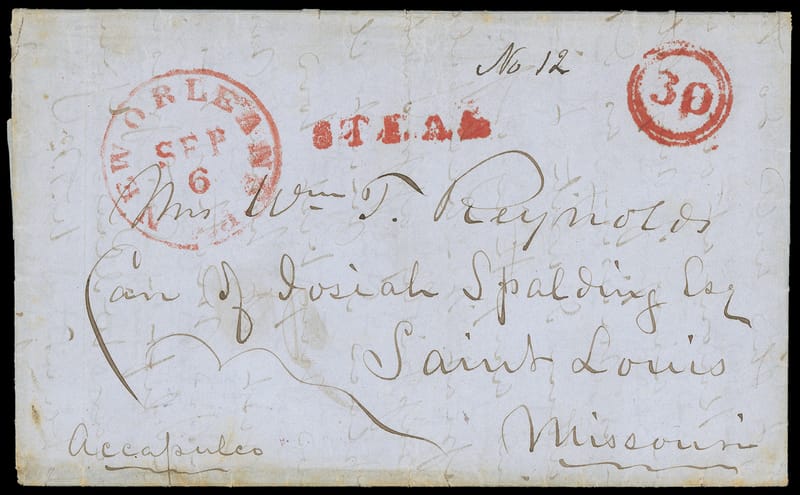 No 12
30
STEAM
NEW ORLEANS
SEP
6
Mrs Wm T. Reynolds
Car of Josiah Spalding Esq
Saint Louis
Missouri
Accapulco